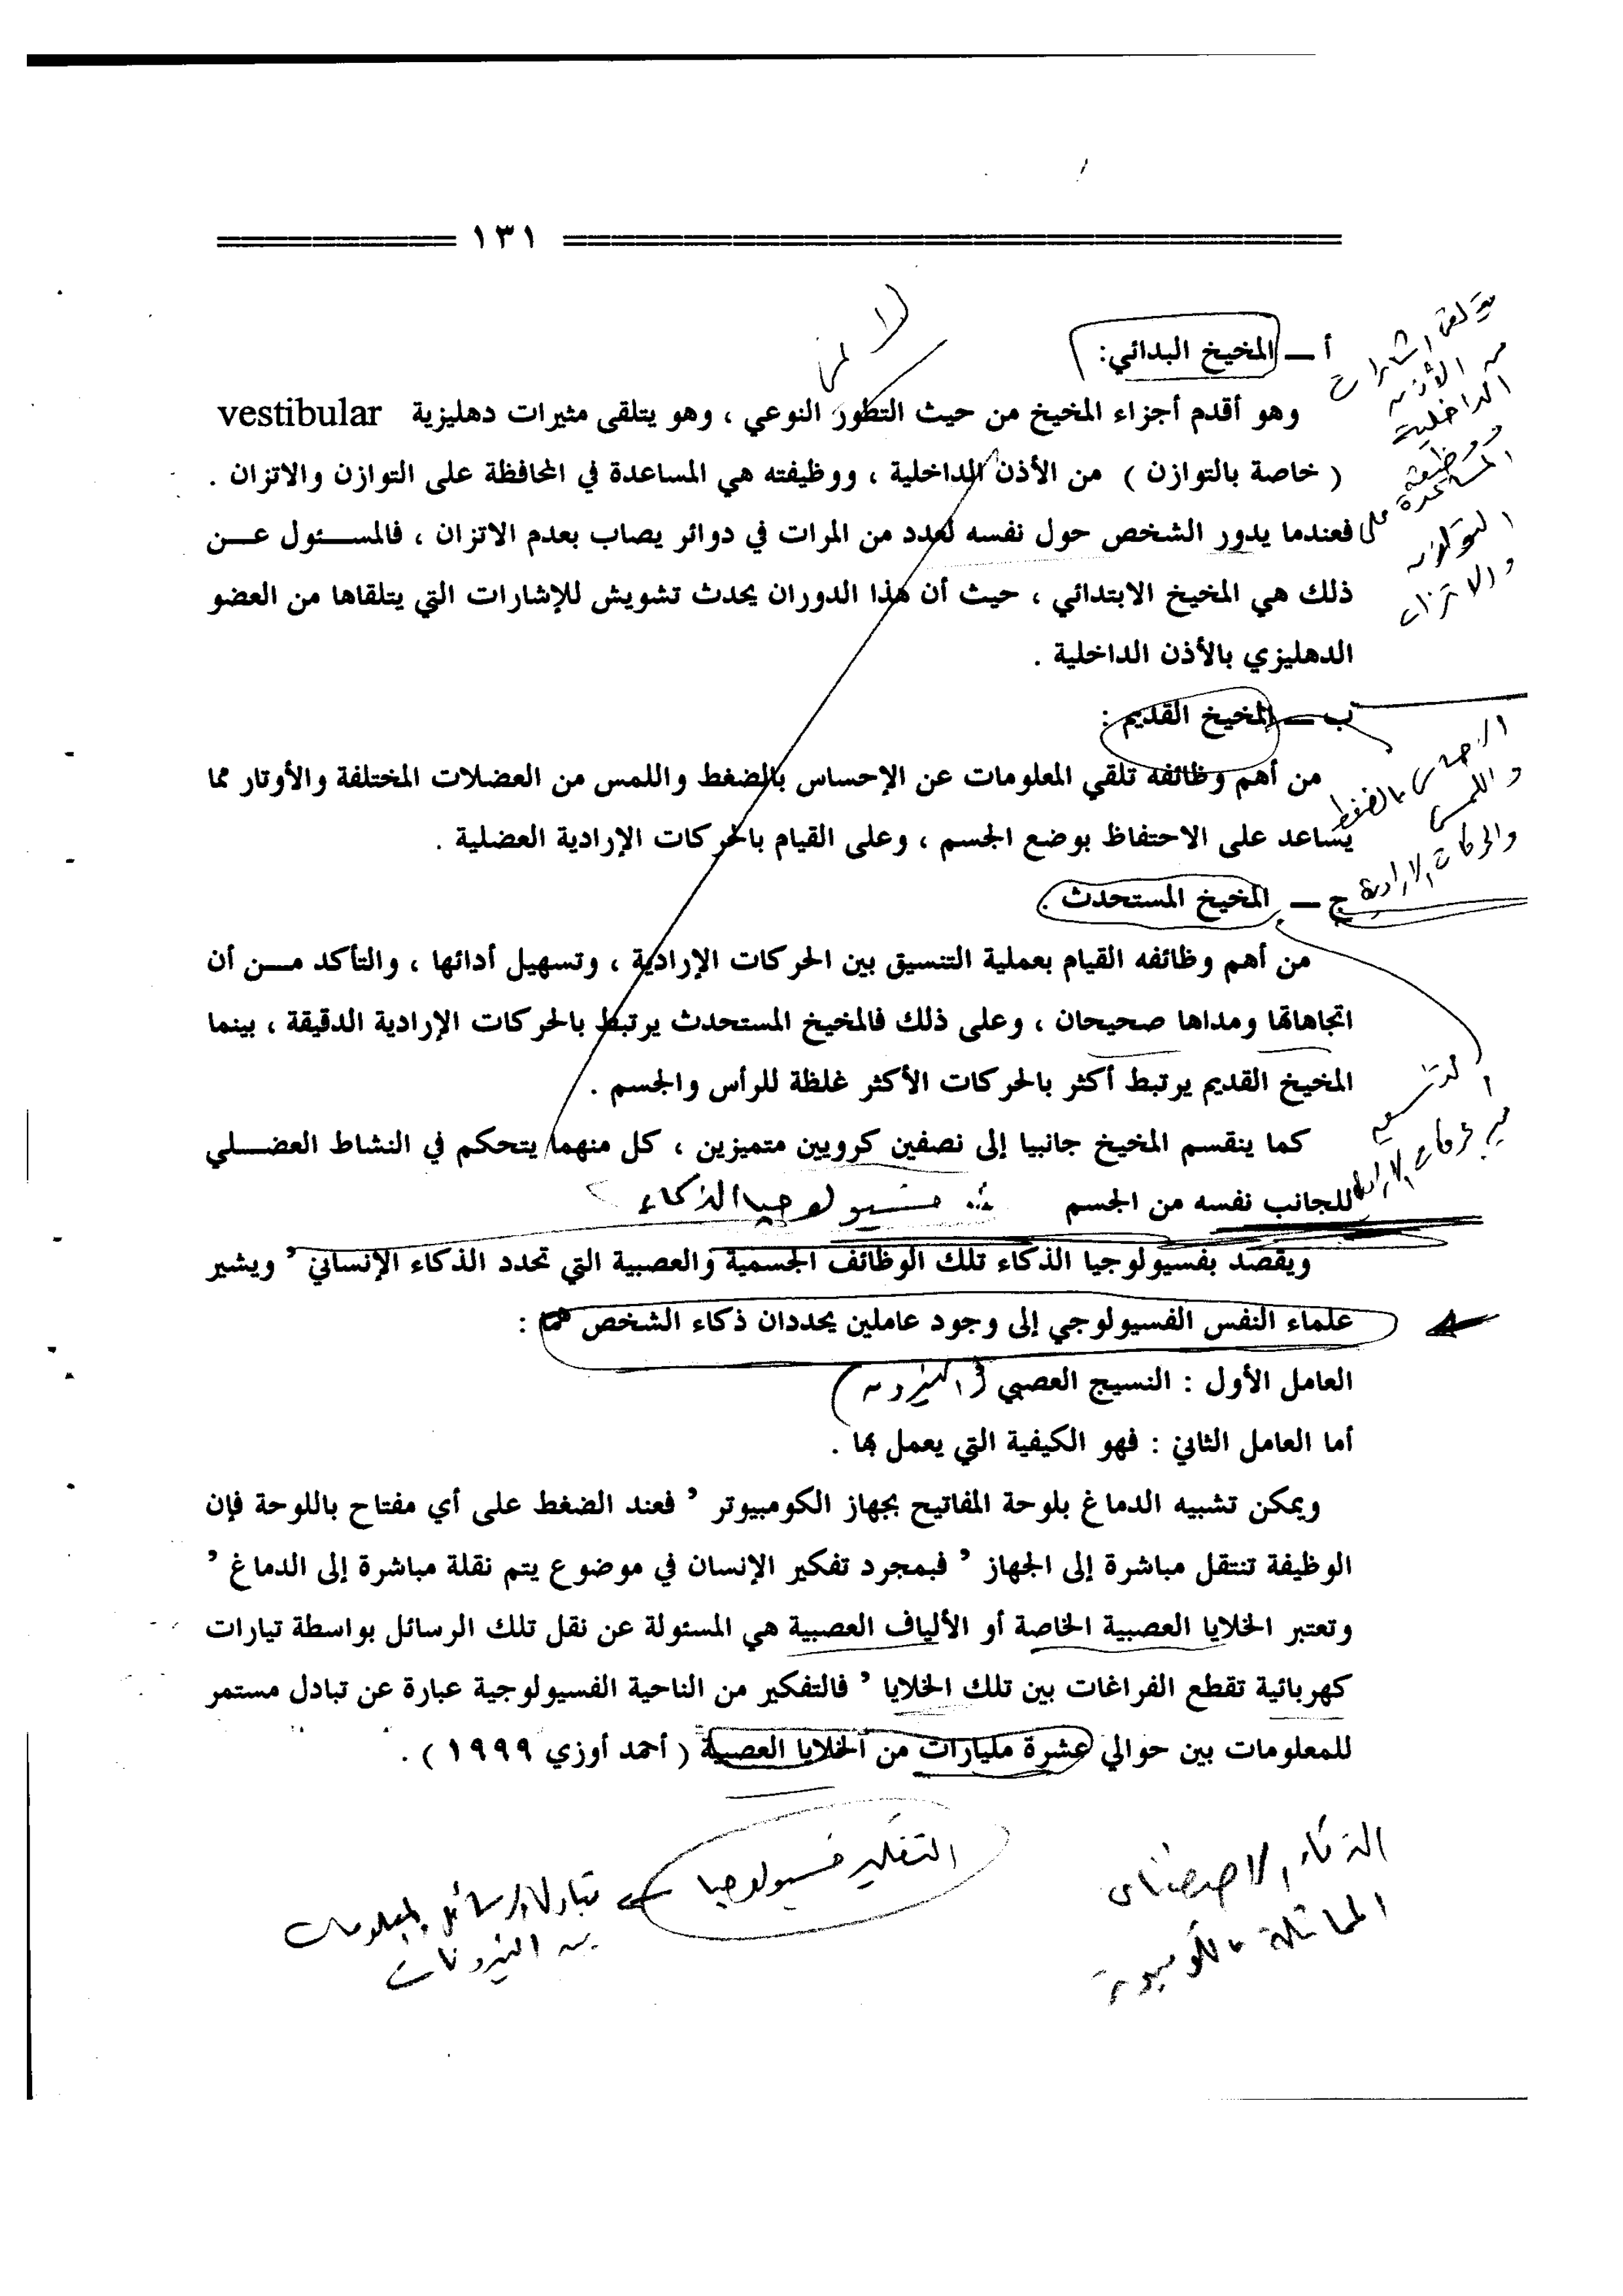 ١٣١
أ ــ المخيخ البدائي:
وهو أقدم أجزاء المخيخ من حيث التطور النوعي ، وهو يتلقى مثيرات دهليزية vestibular
( خاصة بالتوازن ) من الأذن الداخلية ، ووظيفته هي المساعدة في المحافظة على التوازن والاتزان .
فعندما يدور الشخص حول نفسه لعدد من المرات في دوائر يصاب بعدم الاتزان ، فالمسئول عن
ذلك هي المخيخ الابتدائي ، حيث أن هذا الدوران يحدث تشويش للإشارات التي يتلقاها من العضو
الدهليزي بالأذن الداخلية .
إشارات
من الأذن
الداخلية
ووظيفته
المساعدة على
التوازن
والاتزان
ب ــ المخيخ القديم :
من أهم وظائفه تلقي المعلومات عن الإحساس بالضغط واللمس من العضلات المختلفة والأوتار مما
يساعد على الاحتفاظ بوضع الجسم ، وعلى القيام بالحركات الإرادية العضلية .
الاحساس بالضغط
واللمس
والحركات الارادية
ج ــ المخيخ المستحدث :
من أهم وظائفه القيام بعملية التنسيق بين الحركات الإرادية ، وتسهيل أدائها ، والتأكد من أن
اتجاهاتها ومداها صحيحان ، وعلى ذلك فالمخيخ المستحدث يرتبط بالحركات الإرادية الدقيقة ، بينما
المخيخ القديم يرتبط أكثر بالحركات الأكثر غلظة للرأس والجسم .
التنسيق
بين حركات الارادية
كما ينقسم المخيخ جانبيا إلى نصفين كرويين متميزين ، كل منهما يتحكم في النشاط العضلي
للجانب نفسه من الجسم
فسيولوجيا الذكاء
ويقصد بفسيولوجيا الذكاء تلك الوظائف الجسمية والعصبية التي تحدد الذكاء الإنساني ' ويشير
علماء النفس الفسيولوجي إلى وجود عاملين يحددان ذكاء الشخص هما :
العامل الأول : النسيج العصبي ( النيرون )
أما العامل الثاني : فهو الكيفية التي يعمل بها .
ويمكن تشبيه الدماغ بلوحة المفاتيح بجهاز الكومبيوتر ' فعند الضغط على أي مفتاح باللوحة فإن
الوظيفة تنتقل مباشرة إلى الجهاز ' فبمجرد تفكير الإنسان في موضوع يتم نقلة مباشرة إلى الدماغ '
وتعتبر الخلايا العصبية الخاصة أو الألياف العصبية هي المسئولة عن نقل تلك الرسائل بواسطة تيارات
كهربائية تقطع الفراغات بين تلك الخلايا ' فالتفكير من الناحية الفسيولوجية عبارة عن تبادل مستمر
للمعلومات بين حوالي عشرة مليارات من الخلايا العصبية ( أحمد أوزي ١٩٩٩ ) .
الذكاء الاصطناعي
المماثلة
التفكير فسيولوجيا
تبادل الرسائل والمعلومات
بين النيرونات